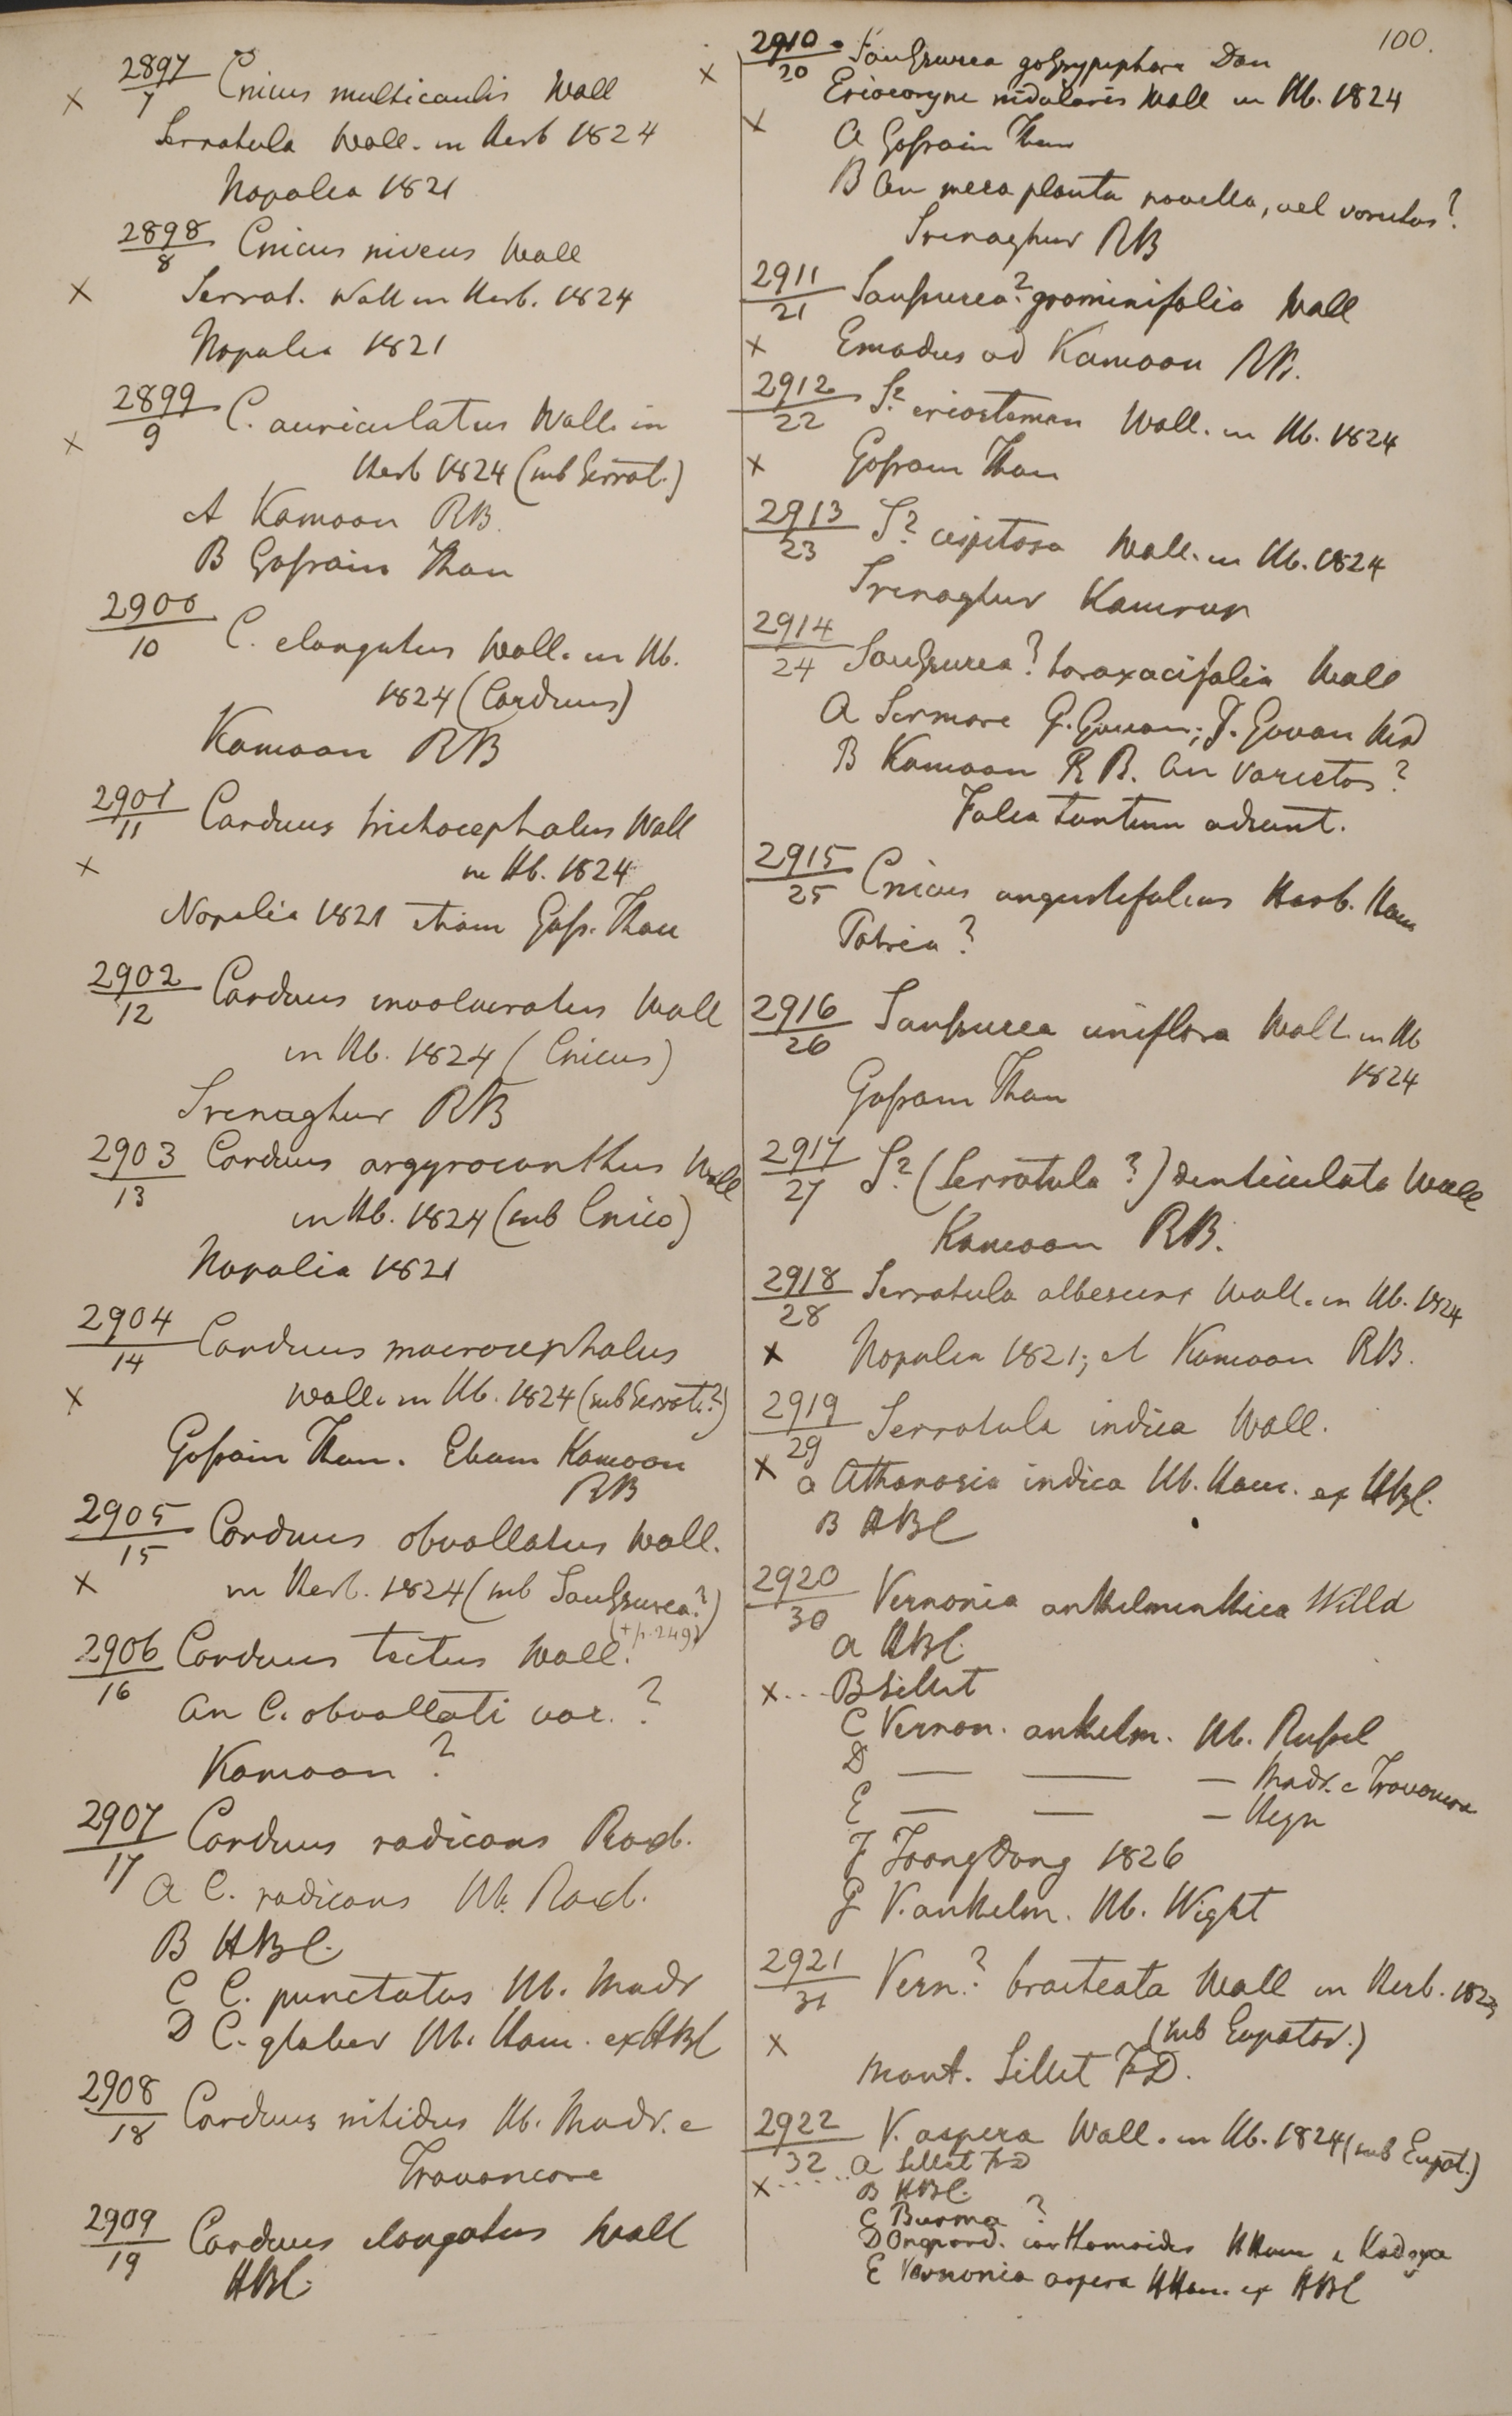 100.
2897/7 Cnicus multicaulis Wall
x
Serratula Wall. in Herb 1824
Napalia 1821
2898/8 Cnicus niveus Wall
x Serrat. Wall in Herb. 1824
Napalia 1821
2899/9 C. auriculatus Wall. in
x
Herb 1824 (sub Serrat.)
A Kamoon RB.
B Gossain Than
2900/10 C. elongatus Wall. in Hb.
1824 (Carduus)
Kamoon RB
2901/11 Carduus trichocephalus Wall
x in Hb. 1824
Napalia 1821 etiam Goss. Than
2902/12 Carduus involucratus Wall
in Hb. 1824 (Cnicus)
Srenaghur RB
2903/13 Carduus argyrocanthus Wall
in Hb. 1824 (sub Cnico)
Napalia 1821
2904/14 Carduus macrocephalus
x Wall. in Hb. 1824 (sub Serrat.?)
Gossain Than. Etiam Kamoon
RB
2905/15 Carduus obvallatus Wall.
x in Herb. 1824 (sub Saussurea?)
(+ p. 249)
2906/16 Carduus tectus Wall.
an C. obvallati var.?
Kamoon?
2907/17 Carduus radicans Roxb.
a C. radicans Hb. Roxb.
B HBC.
C C. punctatus Hb. Madr
D C. glaber Hb. Ham. ex HBC
2908/18 Carduus nitidus Hb. Madr. e
Travancore
2909/19 Carduus elongatus Wall
HBC.
2910/20 Saussurea gossypiphora Don
x
Eriocoryne nidularis Wall in Hb. 1824
x a Gossain Than
B an mera planta novella, vel varietas?
Srenaghur RB
2911/21 Saussurea? graminifolia Wall
x Emodus ad Kamoon RB.
2912/22 S.? eriostemon Wall. in Hb. 1824
x Gossain Than
2913/23 S? cespitosa Wall. in Hb. 1824
Srenaghur Kamrup
2914/24 Saussurea? taraxacifolia Wall
a Sirmore G. Govan; J. Govan Herb
B Kamoon RB. an varietas?
Folia tantum adsunt.
2915/25 Cnicus angustifolius Herb. Ham
Patria?
2916/26 Saussurea uniflora Wall. in Hb
1824
Gossain Than
2917/27 S.? (Serratula?) denticulata Wall
Kamoon RB.
2918/28 Serratula albescens Wall. in Hb. 1824
x Napalia 1821; et Kamoon RB.
2919/29 Serratula indica Wall.
x a Athanasia indica Hb. Ham. ex HBC.
B HBC
2920/30 Vernonia anthelminthica Willd
a HBC.
x... B Sillet
C Vernon. anthelm. Hb. Russel
D — — — Madr. e Travancore
E — — — Heyn
F Toong Dong 1826
G V. anthelm. Hb. Wight
2921/31 Vern.? bracteata Wall in Herb. 1823
(sub Eupator.)
x
Mont. Sillet FD.
2922/32 V. aspera Wall. in Hb. 1824 (sub Eupat.)
x..... a Sillet FD
B HBC.
C Burma?
D Onopord. carthamoides HHam e
E Vernonia aspera HHam. ex HBC